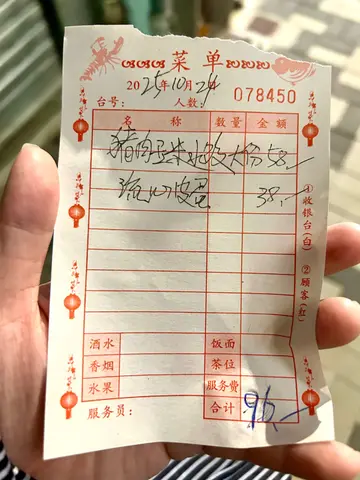 菜单
2025年10月24
台号： 人数： 078450
名 称 数量 金额
猪肉玉米水饺大份 58
流心皮蛋 38
①收银台(白) ②顾客(红)
酒水 饭面
香烟 茶位
水果 服务费
服务员： 合计 96